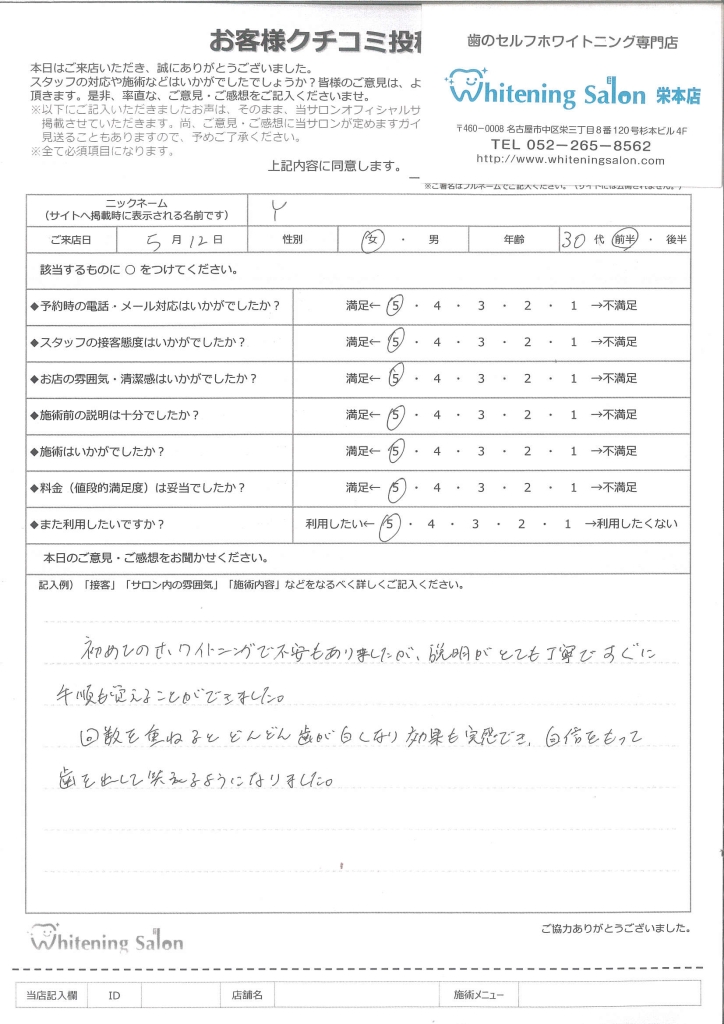 お客様クチコミ投稿
本日はご来店いただき、誠にありがとうございました。
スタッフの対応や施術などはいかがでしたでしょうか?皆様のご意見は、よ
頂きます。是非、率直な、ご意見・ご感想をご記入くださいませ。
※以下にご記入いただきましたお声は、そのまま、当サロンオフィシャルサ
掲載させていただきます。尚、ご意見・ご感想に当サロンが定めますガイ
見送ることもありますので、予めご了承ください。
※全て必須項目になります。
上記内容に同意します。
歯のセルフホワイトニング専門店
Whitening Salon 栄本店
〒460-0008 名古屋市中区栄三丁目8番120号杉本ビル4F
TEL 052-265-8562
http://www.whiteningsalon.com
※ご署名はフルネームでご記入ください。(サイトには公開されません。)
ニックネーム
(サイトへ掲載時に表示される名前です) Y
ご来店日 5月12日 性別 女・男 年齢 30代 前半・後半
該当するものに ○ をつけてください。
◆予約時の電話・メール対応はいかがでしたか? 満足← 5・4・3・2・1 →不満足
◆スタッフの接客態度はいかがでしたか? 満足← 5・4・3・2・1 →不満足
◆お店の雰囲気・清潔感はいかがでしたか? 満足← 5・4・3・2・1 →不満足
◆施術前の説明は十分でしたか? 満足← 5・4・3・2・1 →不満足
◆施術はいかがでしたか? 満足← 5・4・3・2・1 →不満足
◆料金(値段的満足度)は妥当でしたか? 満足← 5・4・3・2・1 →不満足
◆また利用したいですか? 利用したい← 5・4・3・2・1 →利用したくない
本日のご意見・ご感想をお聞かせください。
記入例)「接客」「サロン内の雰囲気」「施術内容」などをなるべく詳しくご記入ください。
初めてのホワイトニングで不安もありましたが、説明がとても丁寧ですぐに
手順も覚えることができました。
回数を重ねるとどんどん歯が白くなり効果も実感でき、自信をもって
歯を出して笑えるようになりました。
Whitening Salon
ご協力ありがとうございました。
当店記入欄 ID 店舗名 施術メニュー